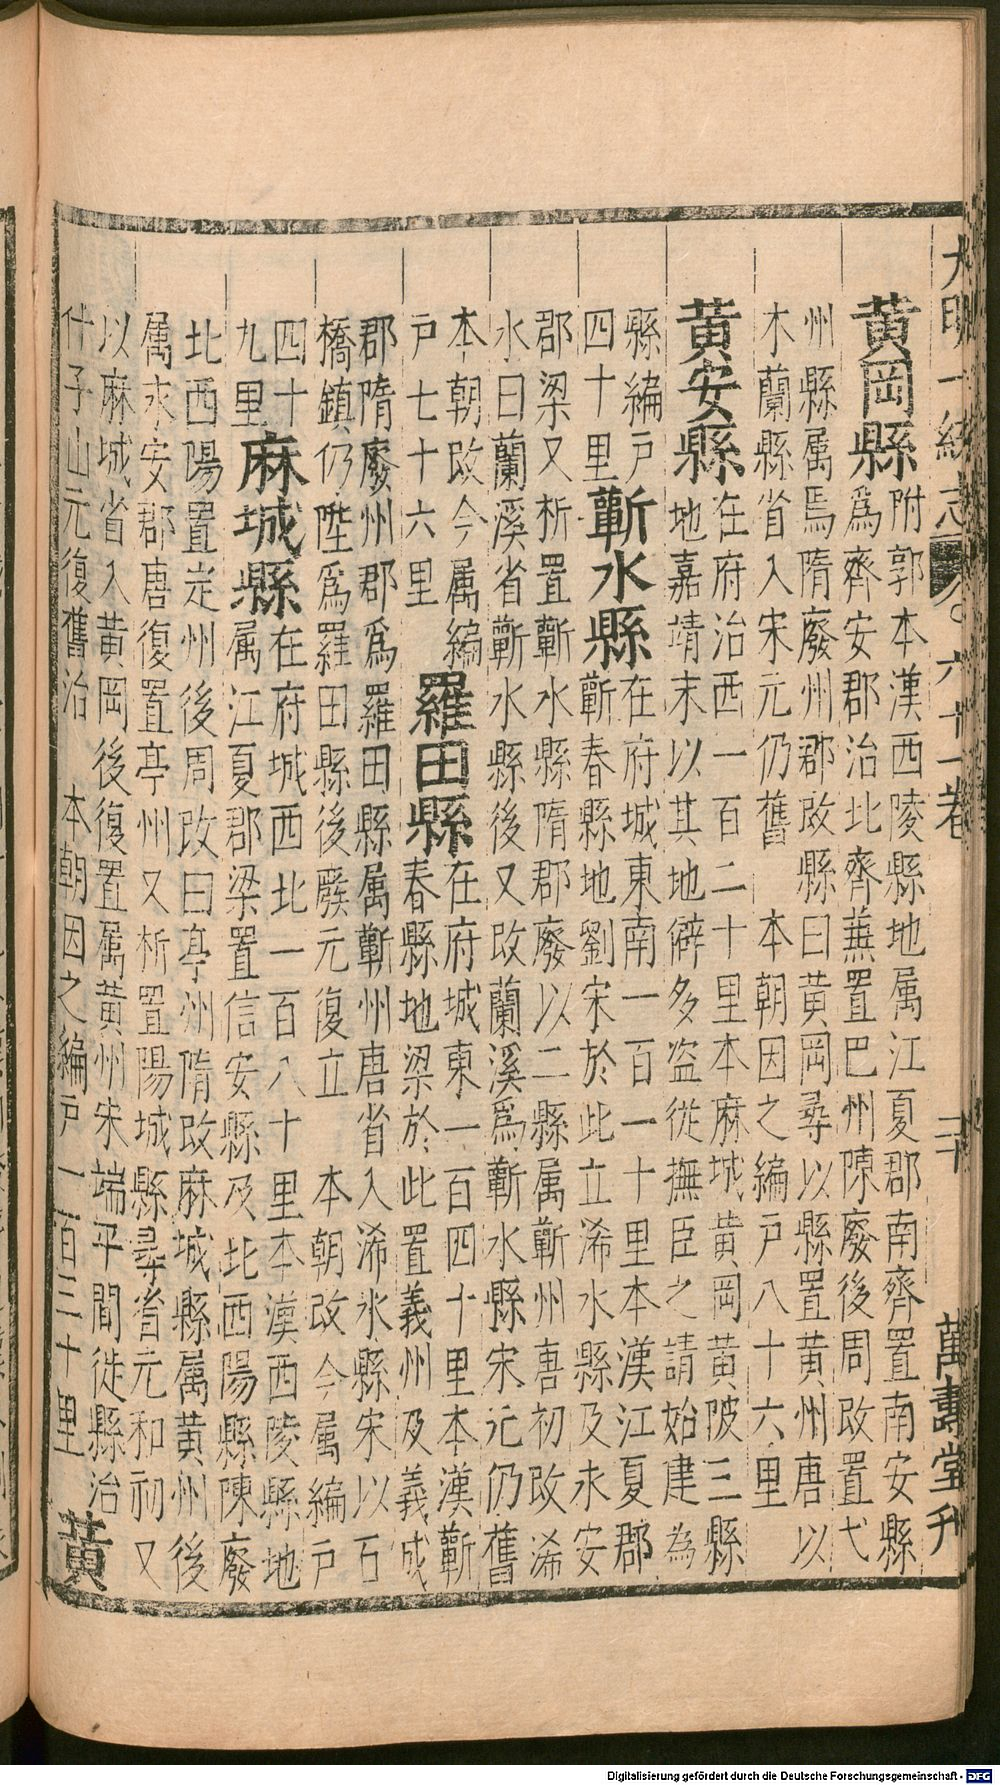 大明一統志 六十一卷 三十 萬壽堂刋
黃岡縣
附郭本漢西陵縣地属江夏郡南齊置南安縣
爲齊安郡治北齊兼置巴州陳廢後周改置弋
州縣属焉隋廢州郡改縣曰黃岡尋以縣置黃州唐以
木蘭縣省入宋元仍舊 本朝因之編戸八十六里
黃安縣
在府治西一百二十里本麻城黃岡黃陂三縣
地嘉靖末以其地僻多盗從撫臣之請始建為
縣編戸
四十里
蘄水縣
在府城東南一百一十里本漢江夏郡
蘄春縣地劉宋於此立浠水縣及永安
郡梁又析置蘄水縣隋郡廢以二縣属蘄州唐初改浠
水曰蘭溪省蘄水縣後又改蘭溪爲蘄水縣宋元仍舊
本朝改今属編
戸七十六里
羅田縣
在府城東一百四十里本漢蘄
春縣地梁於此置義州及義成
郡隋廢州郡爲羅田縣属蘄州唐省入浠水縣宋以石
橋鎮仍陞爲羅田縣後廢元復立 本朝改今属編戸
四十
九里
麻城縣
在府城西北一百八十里本漢西陵縣地
属江夏郡梁置信安縣及北西陽縣陳廢
北西陽置定州後周改曰亭州隋改麻城縣属黃州後
属永安郡唐復置亭州又析置陽城縣尋省元和初又
以麻城省入黃岡後復置属黃州宋端平間徙縣治
什子山元復舊治 本朝因之編戸一百三十里
黃
Digitalisierung gefördert durch die Deutsche Forschungsgemeinschaft - DFG